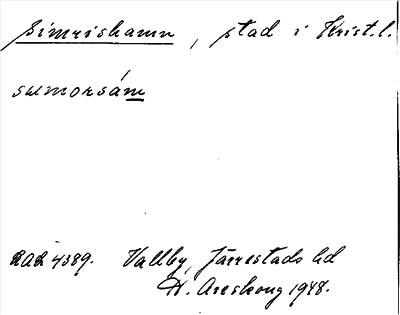 Simrishamn, stad i Krist.l.
summorsám
LAL 4389. Vallby, Järrestads hd
H. Areskoug 1948.